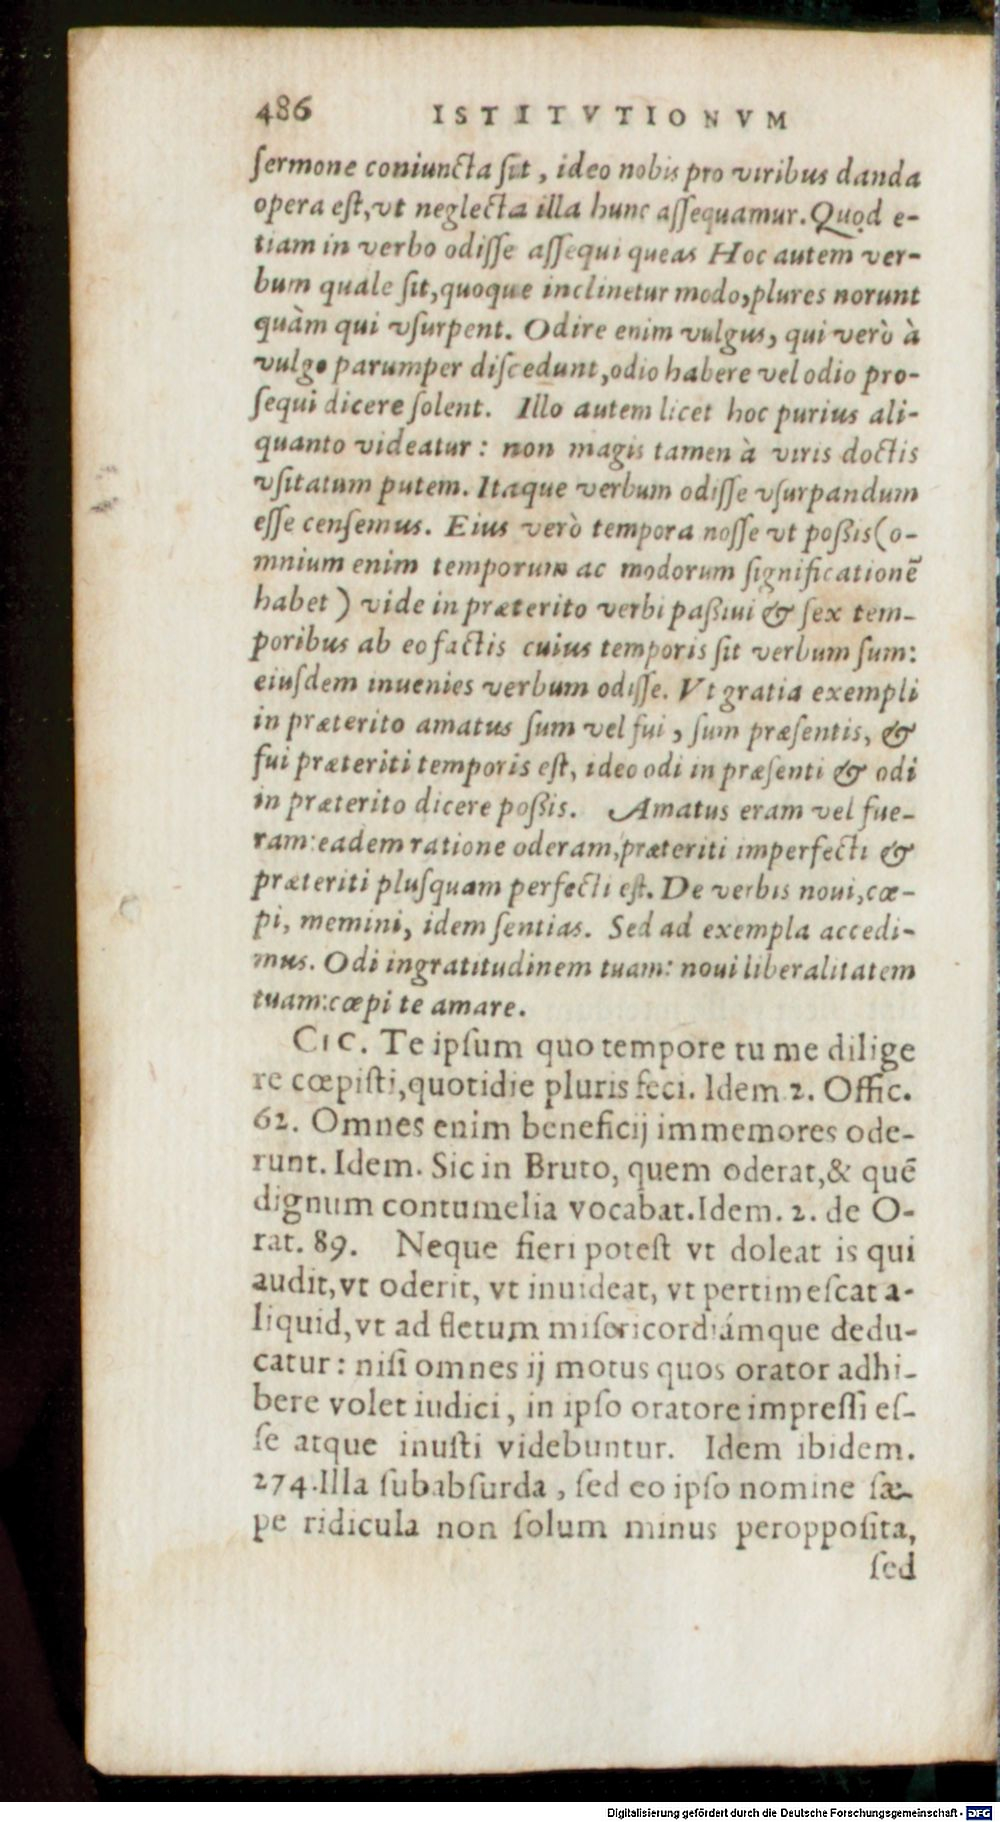 486 ISTITVTIONVM
ſermone coniuncta ſit, ideo nobis pro viribus danda
opera eſt, vt neglecta illa hunc aſſequamur. Quod e-
tiam in verbo odiſſe aſſequi queas Hoc autem ver-
bum quale ſit, quoque inclinetur modo, plures norunt
quàm qui vſurpent. Odire enim vulgus, qui verò à
vulgo parumper diſcedunt, odio habere vel odio pro-
ſequi dicere ſolent. Illo autem licet hoc purius ali-
quanto videatur: non magis tamen à viris doctis
vſitatum putem. Itaque verbum odiſſe vſurpandum
eſſe cenſemus. Eius verò tempora noſſe vt poßis (o-
mnium enim temporum ac modorum ſignificationē
habet) vide in præterito verbi paßiui & ſex tem-
poribus ab eo factis cuius temporis ſit verbum ſum:
eiuſdem inuenies verbum odiſſe. Vt gratia exempli
in præterito amatus ſum vel fui, ſum præſentis, &
fui præteriti temporis eſt, ideo odi in præſenti & odi
in præterito dicere poßis. Amatus eram vel fue-
ram: eadem ratione oderam, præteriti imperfecti &
præteriti pluſquam perfecti eſt. De verbis noui, cœ-
pi, memini, idem ſentias. Sed ad exempla accedi-
mus. Odi ingratitudinem tuam: noui liberalitatem
tuam: cœpi te amare.
CIC. Te ipſum quo tempore tu me dilige
re cœpiſti, quotidie pluris feci. Idem 2. Offic.
62. Omnes enim beneficij immemores ode-
runt. Idem. Sic in Bruto, quem oderat, & quē
dignum contumelia vocabat. Idem. 2. de O-
rat. 89. Neque fieri poteſt vt doleat is qui
audit, vt oderit, vt inuideat, vt pertimeſcat a-
liquid, vt ad fletum miſericordiámque dedu-
catur: niſi omnes ij motus quos orator adhi-
bere volet iudici, in ipſo oratore impreſſi eſ-
ſe atque inuſti videbuntur. Idem ibidem.
274. Illa ſubabſurda, ſed eo ipſo nomine ſæ-
pe ridicula non ſolum minus peroppoſita,
ſed
Digitalisierung gefördert durch die Deutsche Forschungsgemeinschaft - DFG